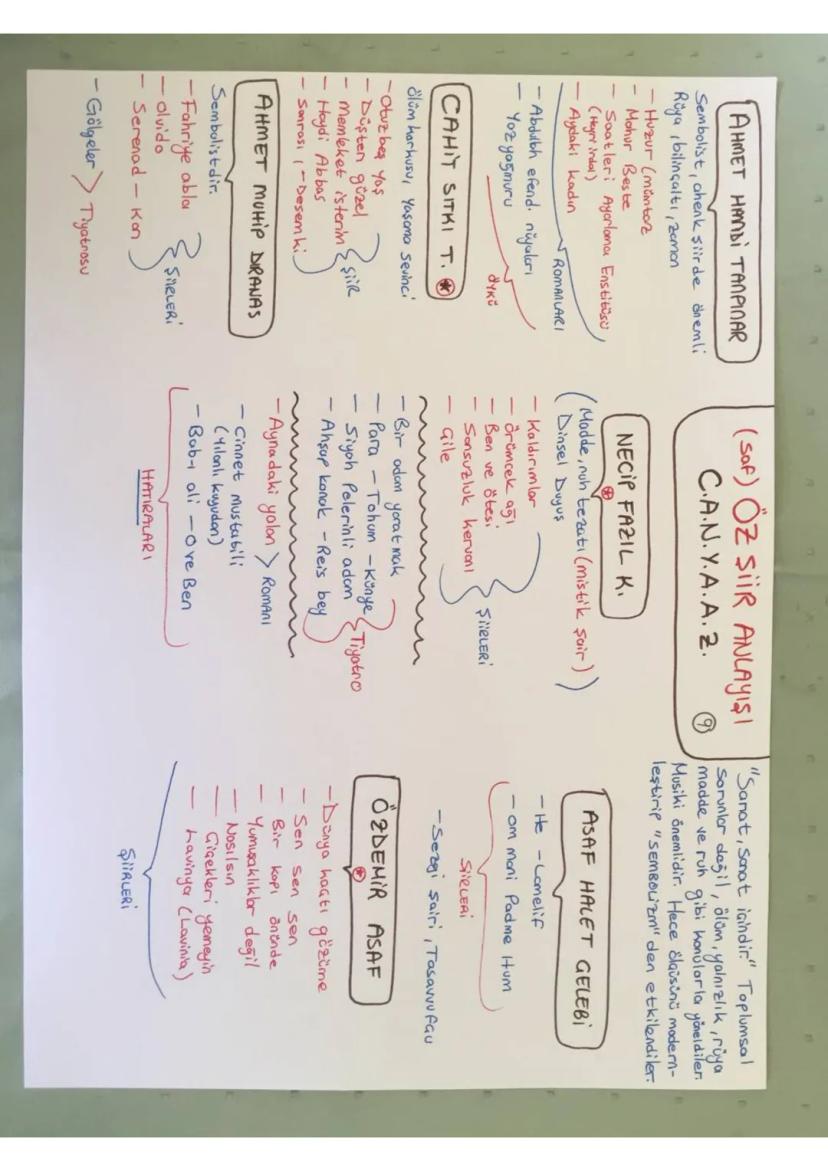 (saf) ÖZ ŞİİR ANLAYIŞI
C.A.N.Y.A.A.Z. 9
"Sanat, sanat içindir." Toplumsal
sorunlar değil, ölüm, yalnızlık, rüya
madde ve ruh gibi konularla yöneldiler.
Musiki önemlidir. Hece ölçüsünü modern-
leştirip "SEMBOLİZM"den etkilendiler.
AHMET HAMDİ TANPINAR
Sembolist, ahenk şiirde önemli
Rüya, bilinçaltı, zaman
- Huzur (mümtaz
- Mahur Beste
- Saatleri Ayarlama Enstitüsü
(Hayri irdal)
- Aydaki kadın
ROMANLARI
- Abdullah efend. rüyaları
- Yaz yağmuru
ÖYKÜ
CAHİT SITKI T.
Ölüm korkusu, yaşama sevinci
- Otuz beş yaş
- Düşten güzel
- Memleket isterim
- Haydi Abbas
- Sonrası, - Desem ki
ŞİİR
AHMET MUHİP DRANAS
Sembolistdir.
- Fahriye abla
- Olvido
- Serenad - Kar
ŞİİRLERİ
- Gölgeler > Tiyatrosu
NECİP FAZIL K.
(Madde, ruh tezatı (mistik şair)
Dinsel Duyuş)
- Kaldırımlar
- Örümcek ağı
- Ben ve ötesi
- Sonsuzluk kervanı
- Çile
ŞİİRLERİ
- Bir adam yaratmak
- Para - Tohum - Künye
- Siyah Pelerinli adam
- Ahşap konak - Reis bey
Tiyatro
- Aynadaki yalan > ROMANI
- Cinnet mustatili
(Yılanlı kuyudan)
- Bab-ı ali - O ve Ben
HATIRALARI
ASAF HALET ÇELEBİ
- He - Lamelif
- Om mani Padme Hum
ŞİİRLERİ
- Sezgi şairi, Tasavvufçu
ÖZDEMİR ASAF
- Dünya kaçtı gözüme
- Sen sen sen
- Bir kapı önünde
- Yumuşaklıklar değil
- Nasılsın
- Çiçekleri yemeyin
- Lavinya (Lavinia)
ŞİİRLERİ